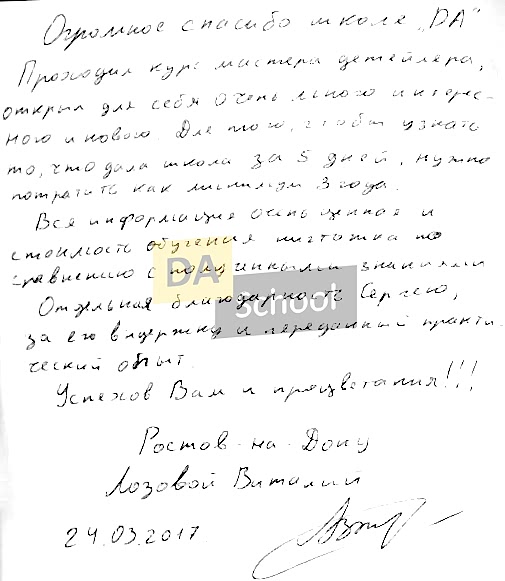 Огромное спасибо школе „DA“
Проходил курс мастера детейлера,
открыл для себя очень много интерес-
ного и нового. Для того, чтобы узнать
то, что дала школа за 5 дней, нужно
потратить как минимум 3 года.
Вся информация очень ценная и
стоимость обучения ничтожна по
сравнению с полученными знаниями
Отдельная благодарность Сергею,
за его выдержку и переданный практи-
ческий опыт.
Успехов Вам и процветания!!!
Ростов-на-Дону
Лозовой Виталий
24.03.2017
DA
School